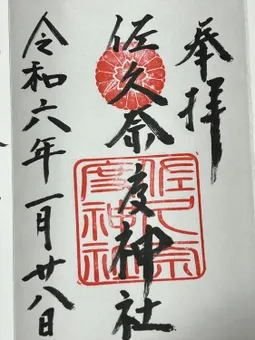 奉拝
佐久奈度神社
令和六年一月廿八日
佐久奈度神社